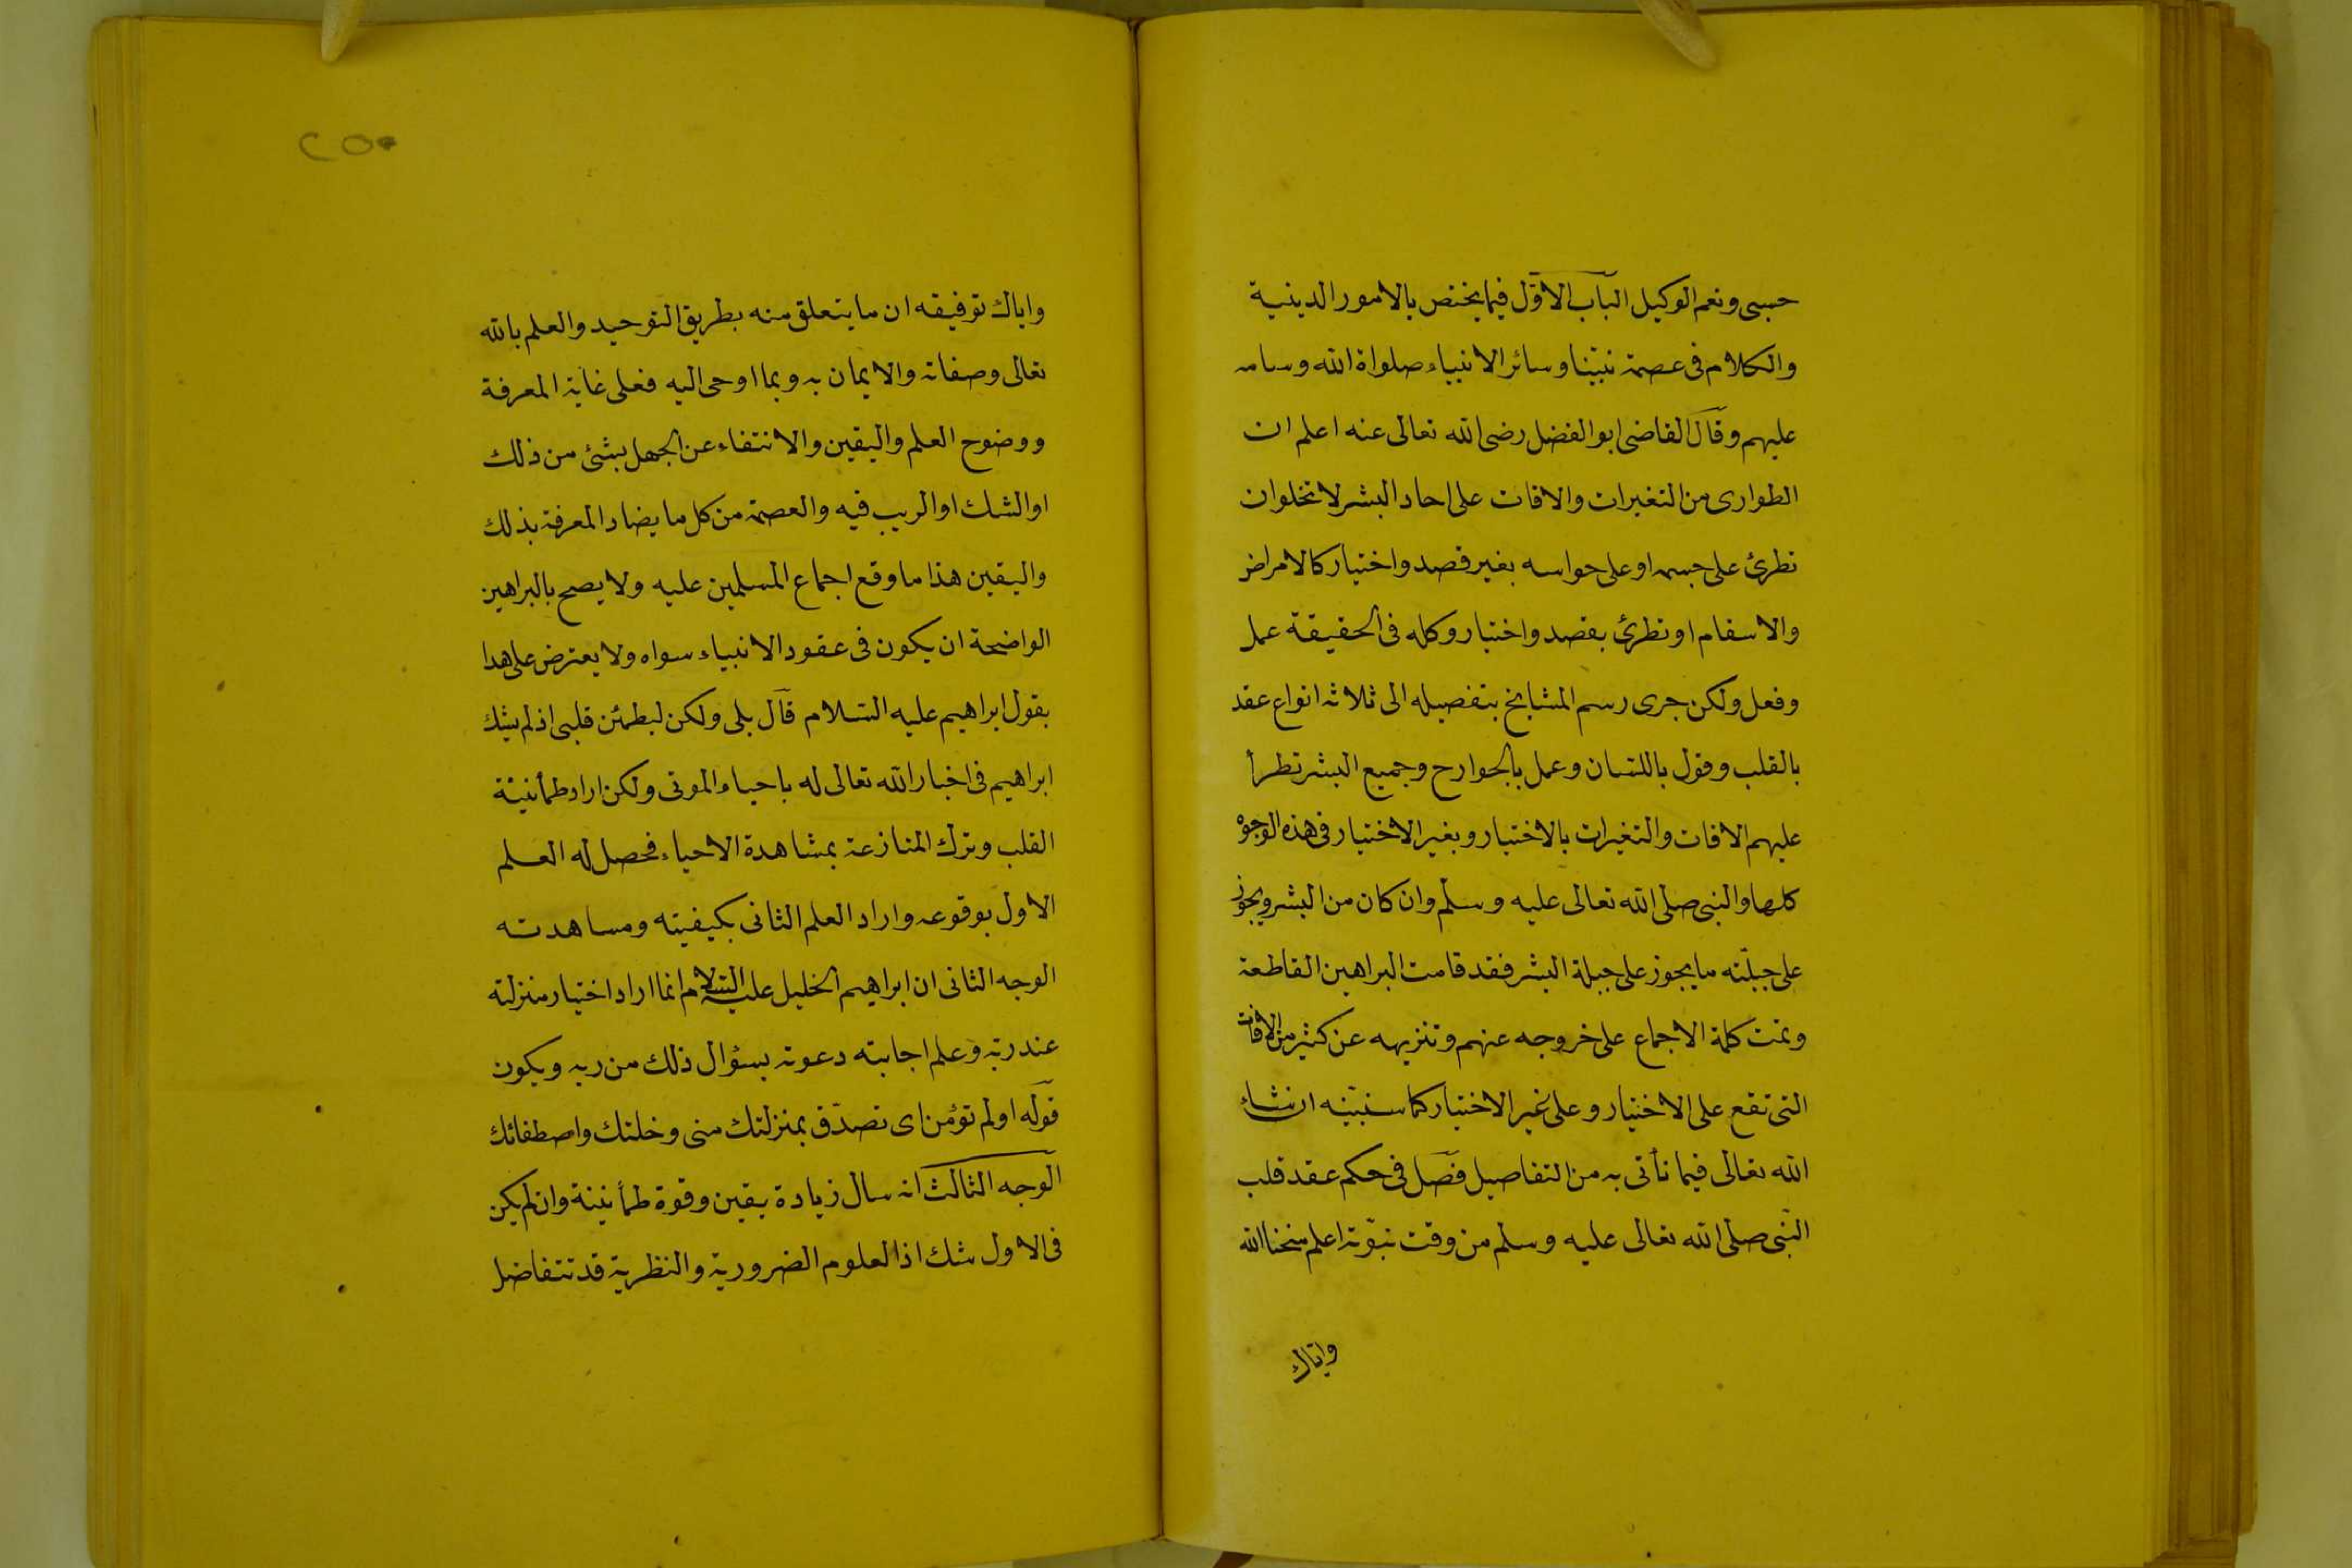 حسبى ونعم الوكيل الباب الاوّل فيما يختص بالامور الدينية
والكلام فى عصمة نبيّنا وسائر الانبياء صلواة الله وسلامه
عليهم وقال القاضى ابو الفضل رضى الله تعالى عنه اعلم ان
الطوارى من التغيرات والافات على احاد البشر لا تخلوان
تطرئ على جسمه او على حواسه بغير قصد واختيار كالامراض
والاسقام او تطرئ بقصد واختيار وكله فى الحقيقة عمل
وفعل ولكن جرى رسم المشايخ بتفصيله الى ثلاثه انواع عقد
بالقلب وقول باللسان وعمل بالجوارح وجميع البشر تطرأ
عليهم الافات والتغيرات بالاختيار وبغير الاختيار فى هذه الوجوه
كلها والنبى صلى الله تعالى عليه وسلم وان كان من البشر ويجوز
على جبلّته ما يجوز على جبلة البشر فقد قامت البراهين القاطعة
وتمت كلمة الاجماع على خروجه عنهم وتنزيهه عن كثير من الافات
التى تقع على الاختيار وعلى غير الاختيار كما سنبيّنه ان شاء
الله تعالى فيما نأتى به من التفاصيل فصل فى حكم عقد قلب
النبى صلى الله تعالى عليه وسلم من وقت نبوّته اعلم منحنا الله
واياك
٢٥٠
واياك توفيقه ان ما يتعلق منه بطريق التوحيد والعلم بالله
تعالى وصفاته والايمان به وبما اوحى اليه فعلى غاية المعرفة
ووضوح العلم واليقين والانتفاء عن الجهل بشئ من ذلك
او الشك او الريب فيه والعصمة من كل ما يضاد المعرفة بذلك
واليقين هذا ما وقع اجماع المسلمين عليه ولا يصح بالبراهين
الواضحة ان يكون فى عقود الانبياء سواه ولا يعترض على هدا
بقول ابراهيم عليه السلام قال بلى ولكن ليطمئن قلبى اذ لم يشك
ابراهيم فى اخبار الله تعالى له باحياء الموتى ولكن اراد طمأنينة
القلب وترك المنازعة بمشاهدة الاحياء فحصل له العلم
الاول بوقوعه واراد العلم الثانى بكيفيته ومساهدته
الوجه الثانى ان ابراهيم الخليل عليه السلام انما اراد اختيار منزلته
عند ربّه وعلم اجابته دعوته بسؤال ذلك من ربه ويكون
قوله اولم تؤمن اى تصدّق بمنزلتك منى وخلتك واصطفائك
الوجه الثالث انه سال زيادة يقين وقوة طمأنينة وان لم يكن
فى الاول شك اذ العلوم الضرورية والنظرية قد تتفاضل